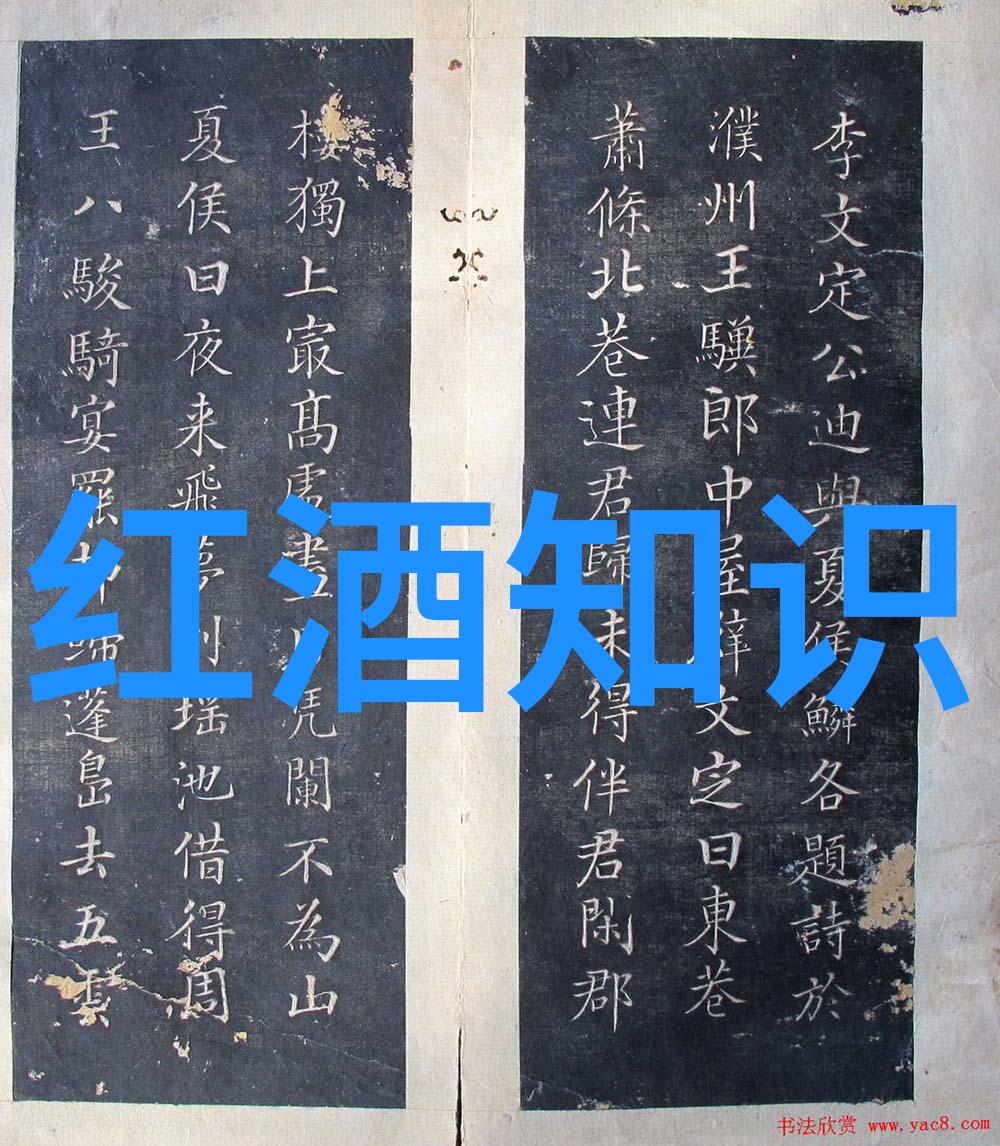 李文定公迪與夏侯鱗各題詩於
濮州王郎中屋文定曰東巷
蕭條北巷連君歸未得伴君閑郡
樓獨上㝡髙處凭闌不為山
夏侯曰夜来飛夢到瑶池借得周
王八駿騎宴罷却歸蓬島去五雲
红酒知识
书法欣赏 www.yac8.com